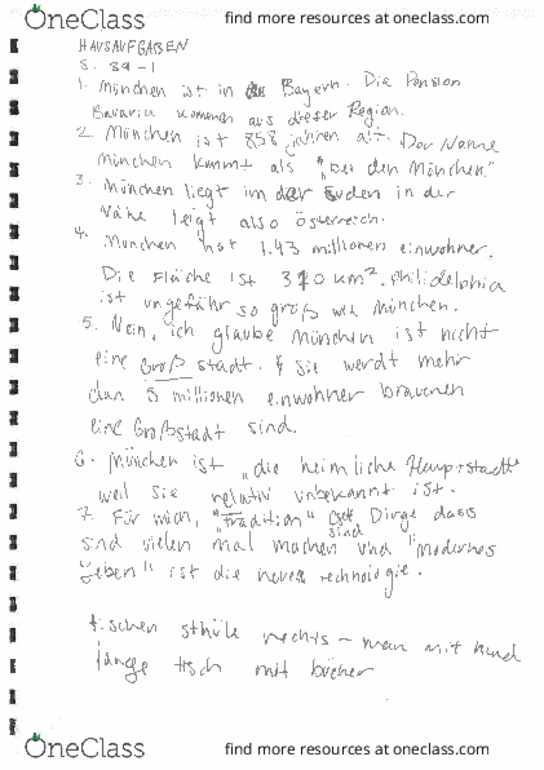 OneClass
find more resources at oneclass.com
HAUSAUFGABEN
S. 39-1
1. München ist in Bayern. Die Pension
Bavaria kommen aus dieser Region.
2. München ist 858 jahren alt. Der Name
München kommt als "bei den Mönchen."
3. München liegt im der Süden in der
Nähe leigt also österreich.
4. München hat 1.43 millionen einwohner.
Die Fläche ist 310 km². Philidelphia
ist ungefähr so groß wie München.
5. Nein, ich glaube München ist nicht
eine Groß stadt. Sie werdt mehr
dan 5 millionen einwohner brauchen
eine Großstadt sind.
6. München ist „die heimliche Hauptstadt"
weil sie relativ unbekannt ist.
7. Für mich, "tradition" Dinge dass
sind
sind vielen mal machen und "modernes
Leben" ist die neues technologie.
tischen sthüle rechts - man mit hund
lange tisch mit bücher
OneClass
find more resources at oneclass.com